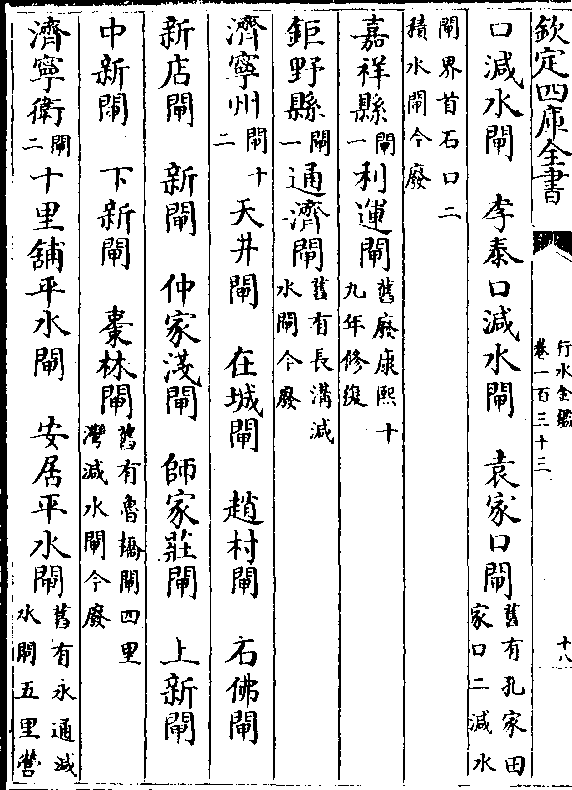 欽定四庫全書
行水金鑑
卷一百三十三
十八
口減水閘 李泰口減水閘 袁家口閘舊有孔家田
家口二減水
閘界首石口二
積水閘今廢
嘉祥縣閘一利運閘舊廢康熙十
九年修復
鉅野縣閘一通濟閘舊有長溝減
水閘今廢
濟寧州閘十二天井閘 在城閘 趙村閘 石佛閘
新店閘 新閘 仲家淺閘 師家莊閘 上新閘
中新閘 下新閘 棗林閘舊有魯橋閘四里
灣減水閘今廢
濟寧衛閘二十里舖平水閘 安居平水閘舊有永通減
水閘五里營